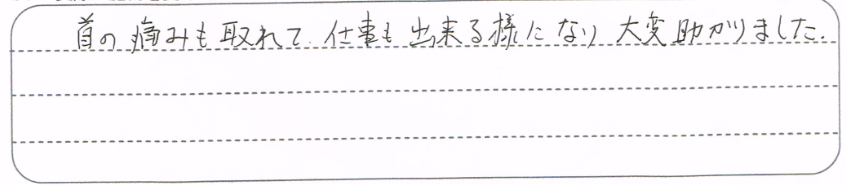 首の痛みも取れて、仕事も出来る様になり大変助かりました。